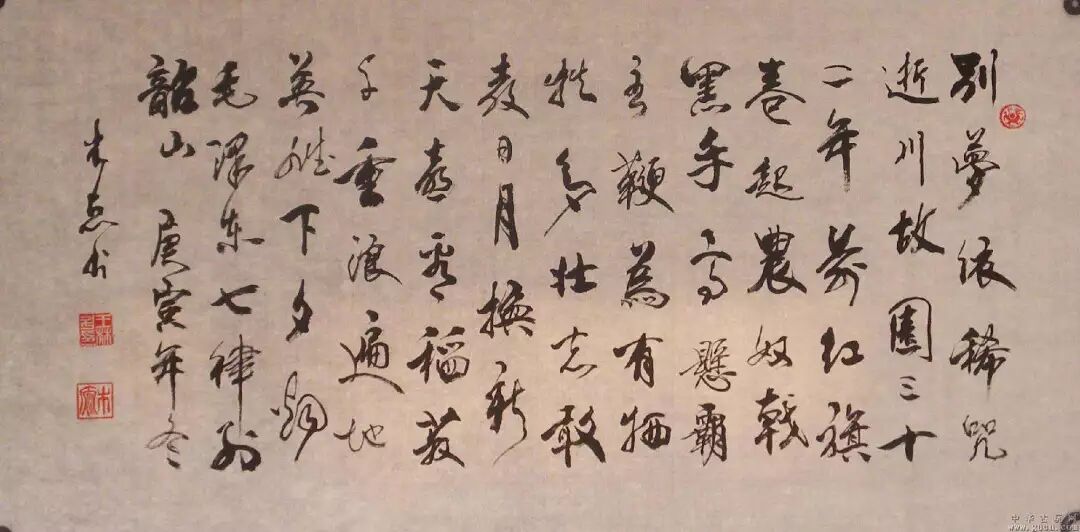 别夢依稀咒
逝川故園三十
二年前红旗
卷起農奴戟
黑手高懸霸
主鞭為有牺
牲多壮志敢
教日月換新
天喜看稻菽
千重浪遍地
英雄下夕烟
毛澤東七律到
韶山 庚寅年冬